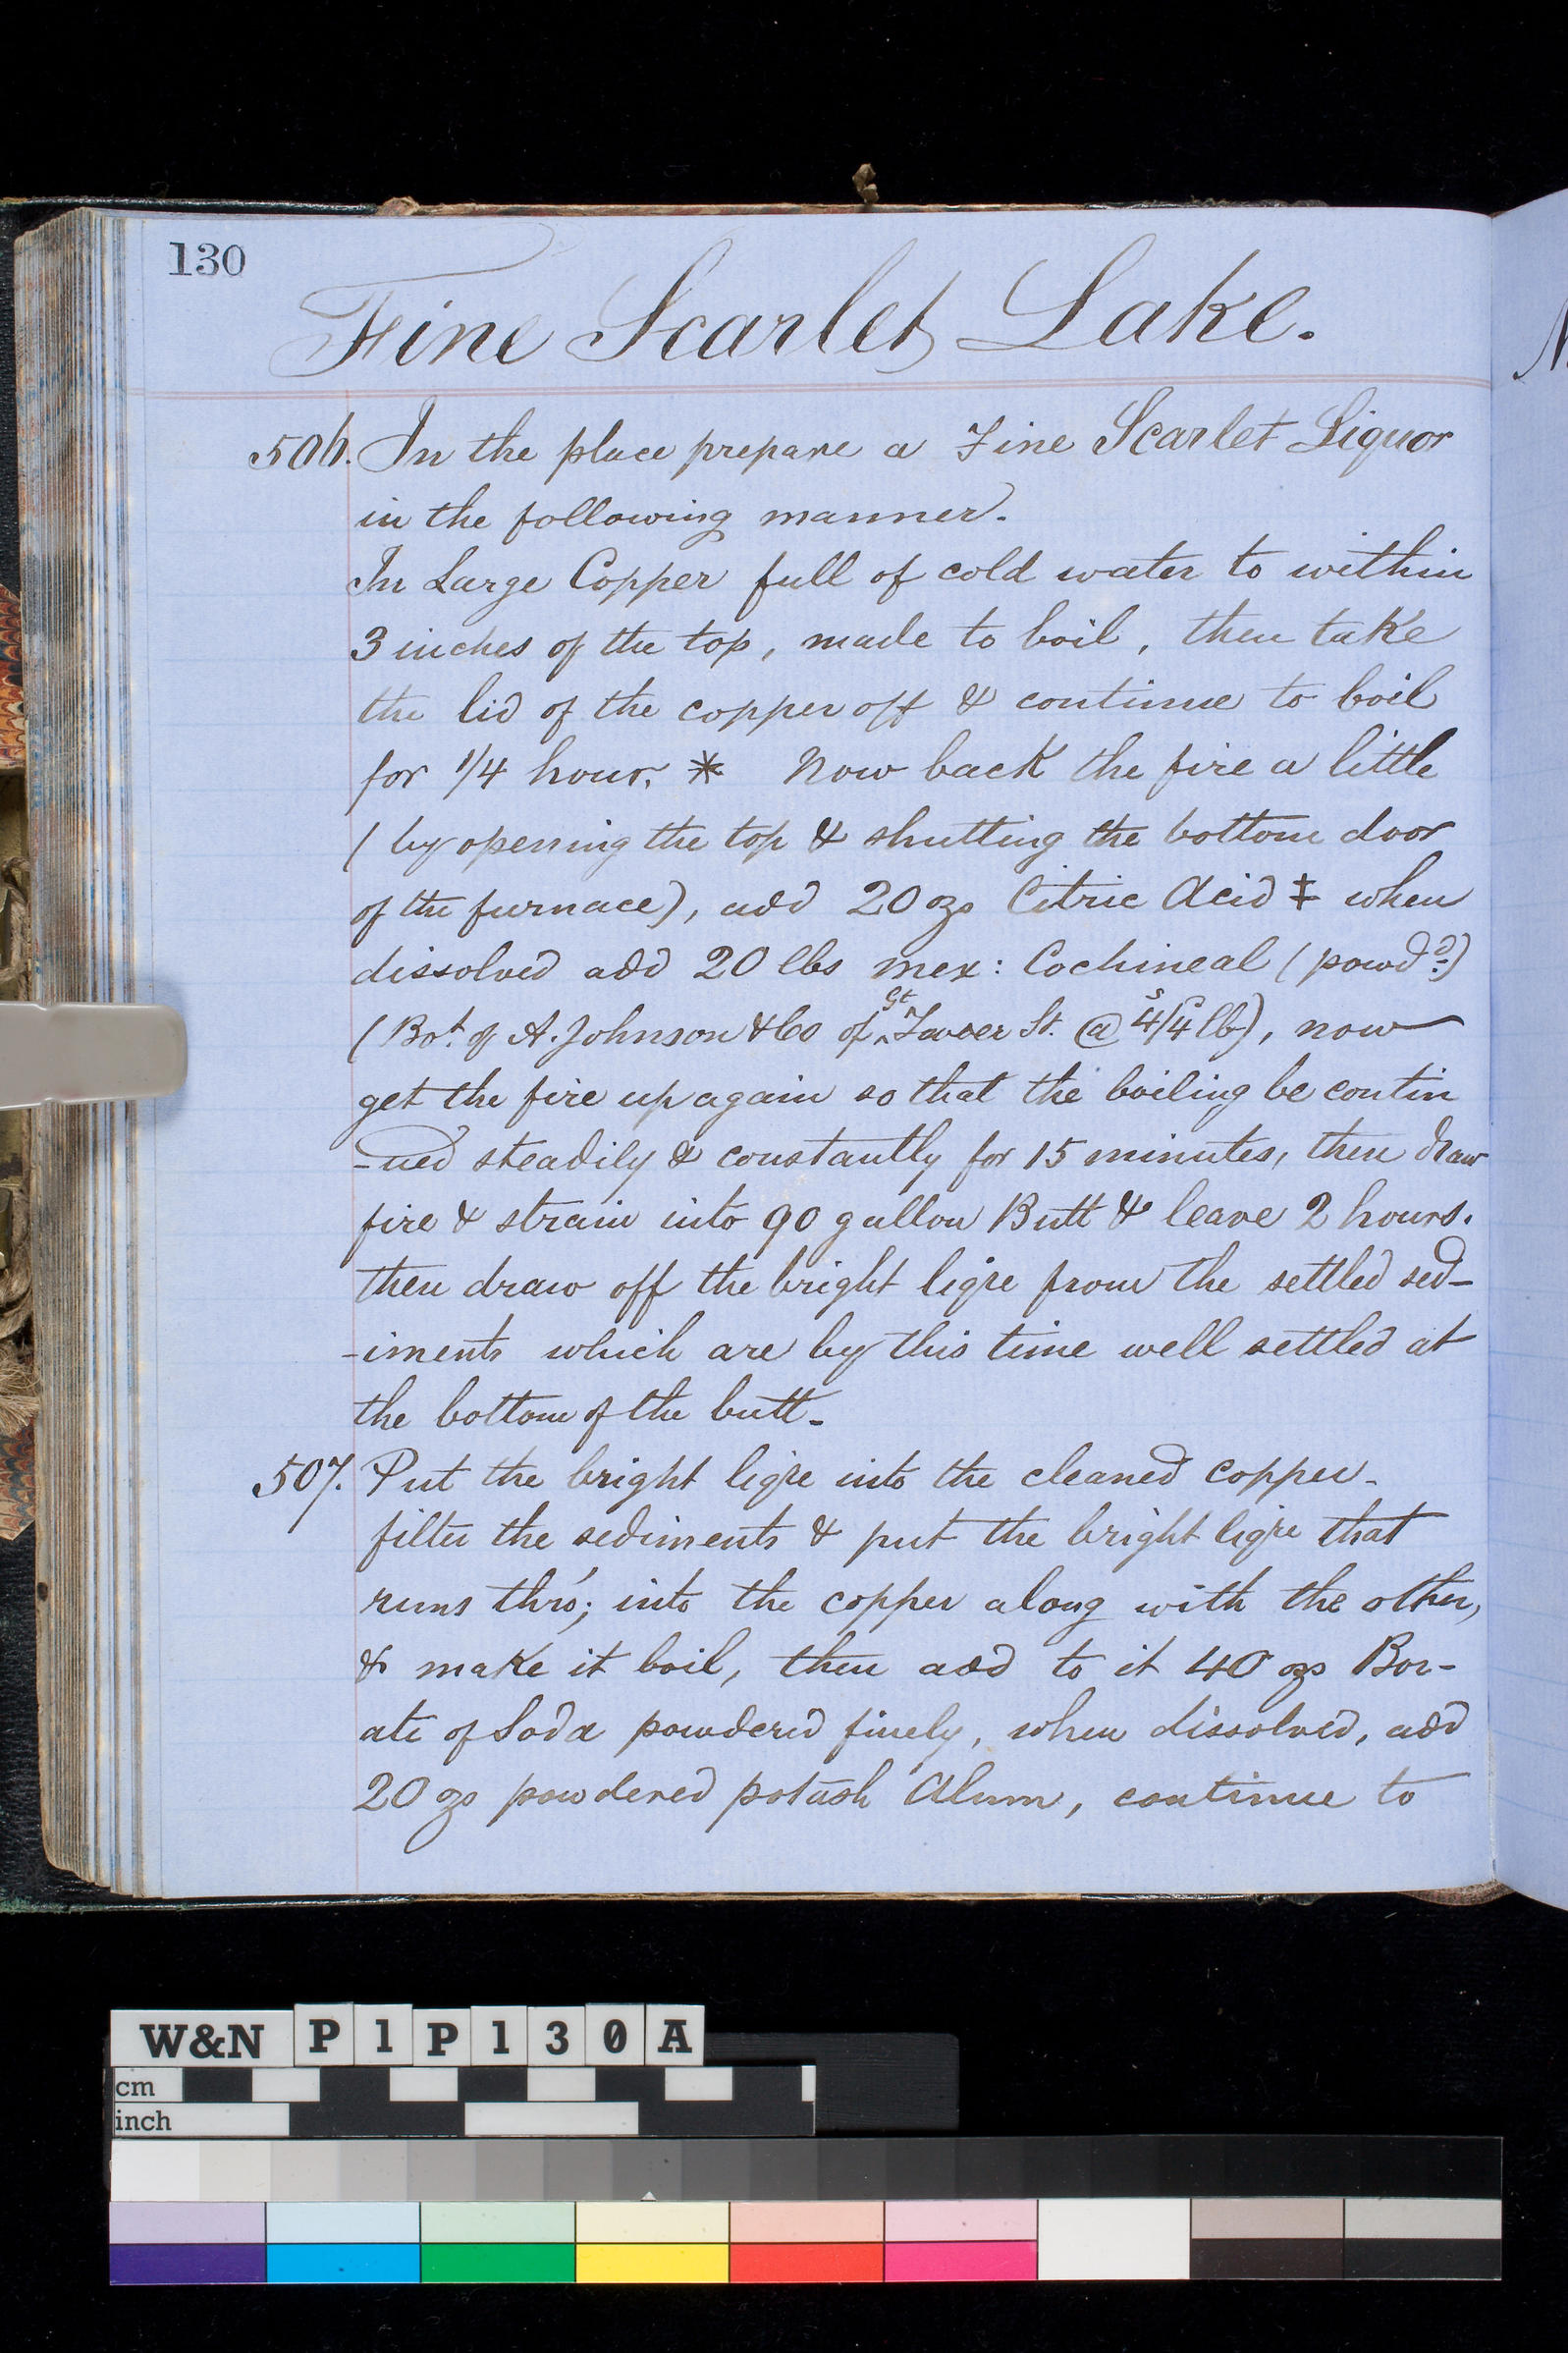 130
Fine Scarlet Lake.
506. In the place prepare a Fine Scarlet Liquor
in the following manner.
In Large Copper full of cold water to within
3 inches of the top, made to boil, then take
the lid of the copper off & continue to boil
for 1/4 hour. * Now back the fire a little
(by opening the top & shutting the bottom door
of the furnace), add 20 ozs Citric Acid ‡ when
dissolved add 20 lbs mex: Cochineal (powd^d:)
(Bo^t. of A. Johnson & Co of ^Gt Tower St. @ 4^s/4^d lb), now
get the fire up again so that the boiling be contin
-ued steadily & constantly for 15 minutes, then draw
fire & strain into 90 gallon Butt & leave 2 hours.
then draw off the bright liq^re from the settled sed-
-iments which are by this time well settled at
the bottom of the butt-
507. Put the bright liq^re into the cleaned copper-
filter the sediments & put the bright liq^re that
runs thro'; into the copper along with the other,
& make it boil, then add to it 40 ozs Bor-
ate of Soda powdered finely, when dissolved, add
20 ozs powdered potash Alum, continue to
W&N P1P130A
cm
inch